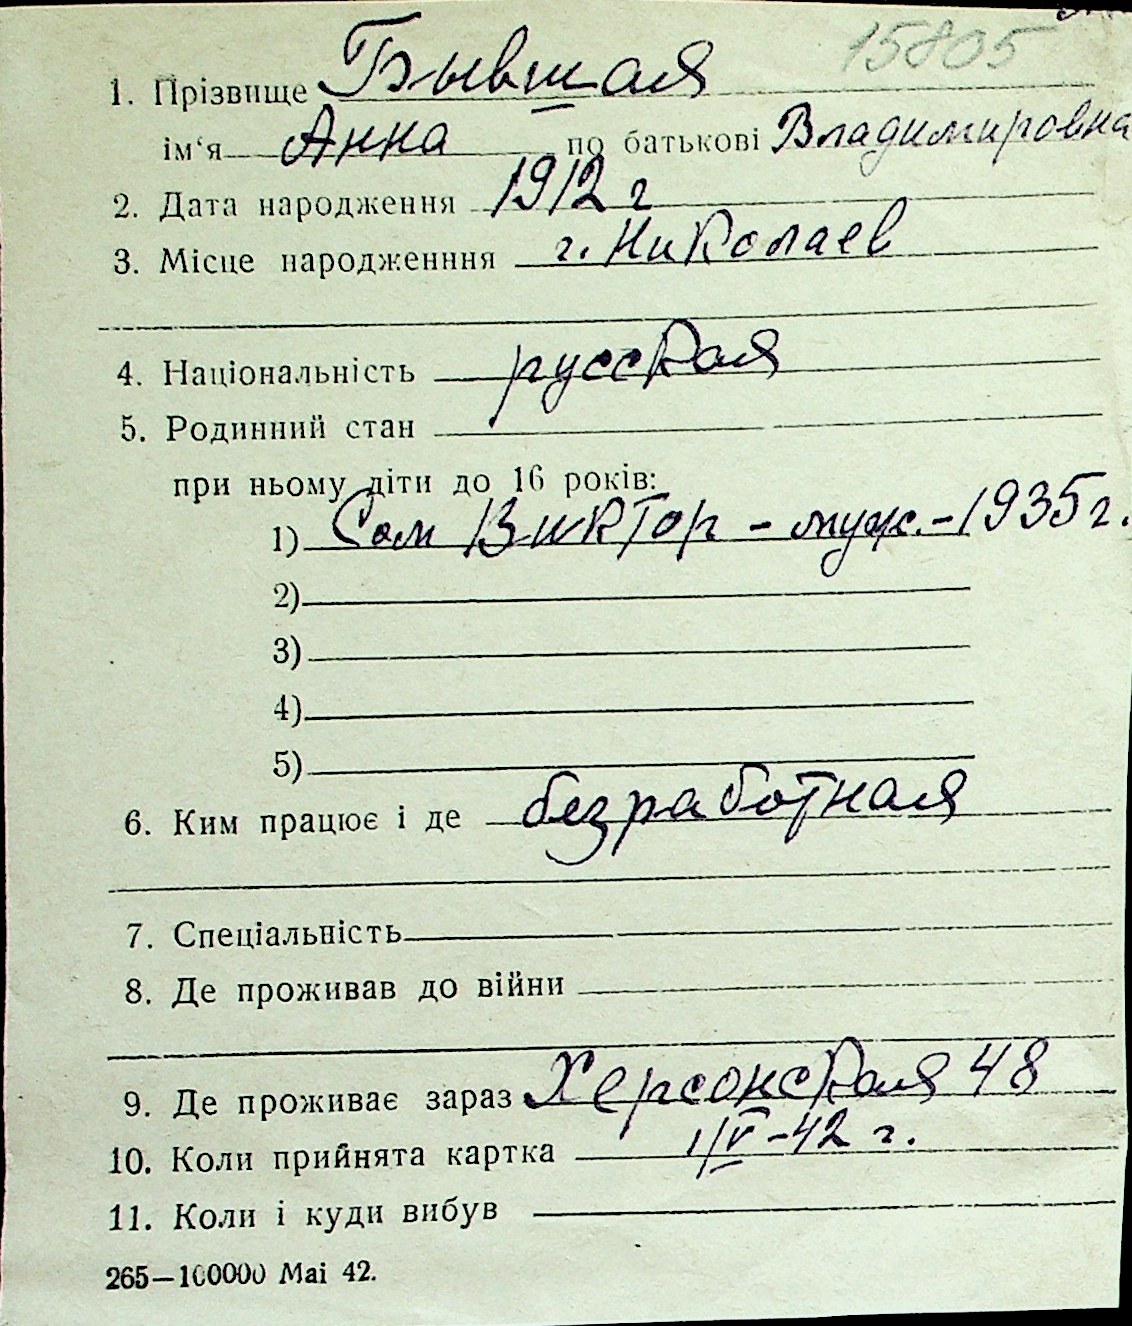 15805
1. Прізвище Бывшая
ім‘я Анна по батькові Владимировна
2. Дата народження 1912 г
3. Місце народженння г. Николаев
4. Національність русская
5. Родинний стан
при ньому діти до 16 років:
1) Сом Виктор - муж. - 1935 г.
2)
3)
4)
5)
6. Ким працює і де безработная
7. Спеціальність
8. Де проживав до війни
9. Де проживає зараз Херсонская 48
10. Коли прийнята картка 1/V-42 г.
11. Коли і куди вибув
265—100000 Mai 42.